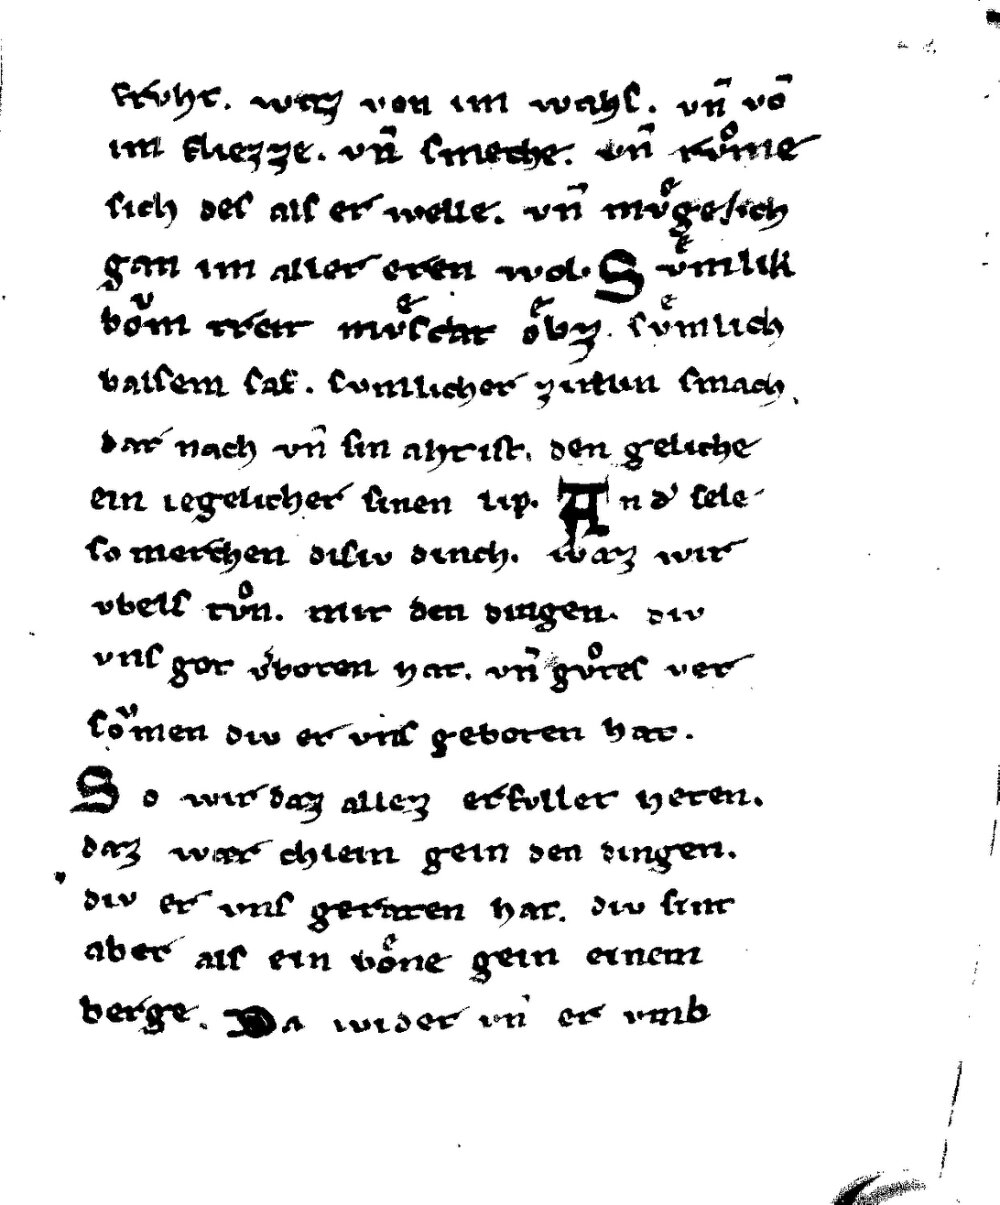 fruht. waz von im wahs. vn̄ vō
im fliezze. vn̄ smeche. vn̄ rvͦme
sich des als er welle. vn̄ mvͤge sich
gan im aller eren wol. Svͤmlik
boͮm treit mvͤschat oͤbz. svͤmlich
balsem saf. svmlicher zintlin smach.
dar nach vn̄ sin aht ist. den geliche
ein iegelicher sinen lip. An d' sele
so merchen disiv dinch. waz wir
vbels tvͦn. mit den dingen. div
vns got v'boten hat. vn̄ gvͦtes ver
soͮmen div er vns geboten hat.
So wir daz allez erfvllet heten.
daz wær chlein gein den dingen.
div er vns geraten hat. div sint
aber als ein boͤne gein einem
berge. Da wider vn̄ er vmb